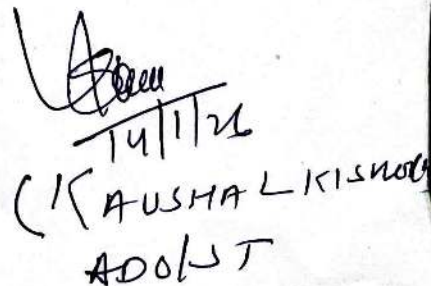 14/1/26
(KAUSHAL KISHORE
ADO/JT